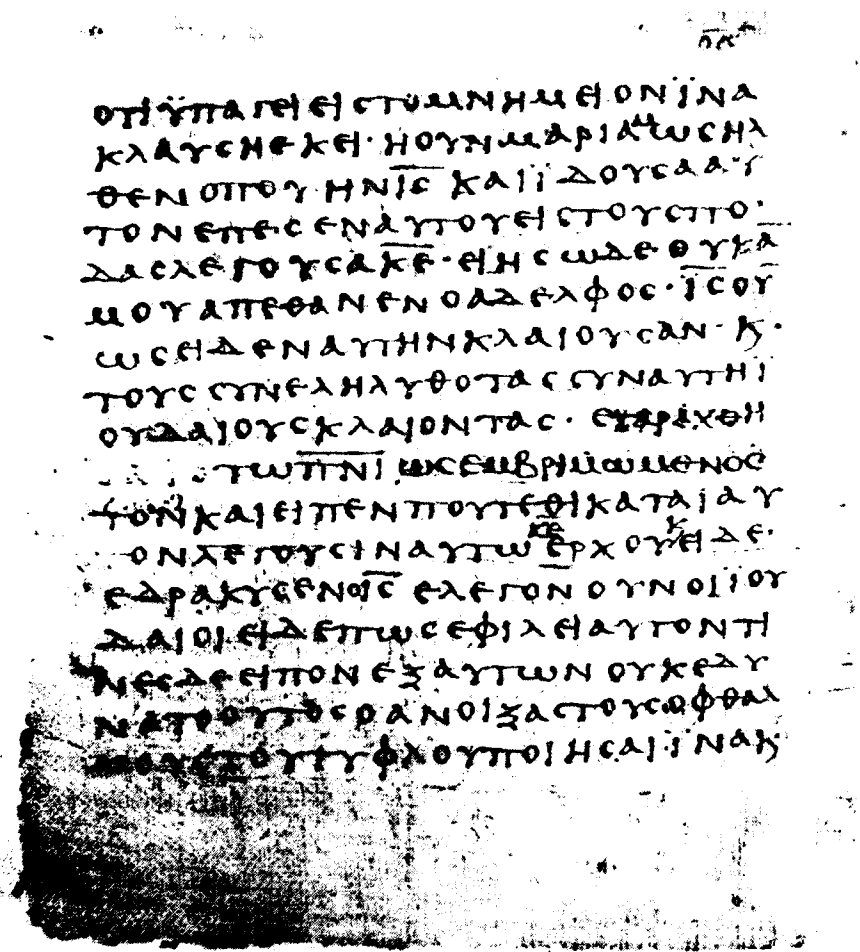 ΟΤΙ ΫΠΑΓΕΙ ΕΙϹ ΤΟ ΜΝΗΜΕΙΟΝ ΪΝΑ
ΚΛΑΥϹΗ ΕΚΕΙ· Η ΟΥΝ ΜΑΡΙΑΜ ΩϹ ΗΛ
ΘΕΝ ΟΠΟΥ ΗΝ Ι̅Ϲ̅ ΚΑΙ ΪΔΟΥϹΑ ΑΥ
ΤΟΝ ΕΠΕϹΕΝ ΑΥΤΟΥ ΕΙϹ ΤΟΥϹ ΠΟ·
ΔΑϹ ΛΕΓΟΥϹΑ Κ̅Ε̅· ΕΙ ΗϹ ΩΔΕ ΟΥΚ Α̅
ΜΟΥ ΑΠΕΘΑΝΕΝ Ο ΑΔΕΛΦΟϹ· Ι̅Ϲ̅ ΟΥ̅
ΩϹ ΕΙΔΕΝ ΑΥΤΗΝ ΚΛΑΙΟΥϹΑΝ· Κ·
ΤΟΥϹ ϹΥΝΕΛΗΛΥΘΟΤΑϹ ϹΥΝ ΑΥΤΗ Ϊ
ΟΥΔΑΙΟΥϹ ΚΛΑΙΟΝΤΑϹ· ΕΤΑΡΑΧΘΗ
ΤΩ Π̅Ν̅Ι̅ ΩϹ ΕΜΒΡΙΜΩΜΕΝΟϹ
ΚΑΙ ΕΙΠΕΝ ΠΟΥ ΤΕΘΙΚΑΤΑΙ ΑΥ
ΤΟΝ ΛΕΓΟΥϹΙΝ ΑΥΤΩ Κ̅Ε̅ ΕΡΧΟΥ Κ ΕΙΔΕ·
ΕΔΑΚΡΥϹΕΝ Ο Ι̅Ϲ̅ ΕΛΕΓΟΝ ΟΥΝ ΟΙ ΪΟΥ
ΔΑΙΟΙ ΕΙΔΕ ΠΩϹ ΕΦΙΛΕΙ ΑΥΤΟΝ ΤΙ
ΝΕϹ ΔΕ ΕΙΠΟΝ ΕΞ ΑΥΤΩΝ ΟΥΚ ΕΔΥ
ΝΑΤΟ ΟΥΤΟϹ Ο ΑΝΟΙΞΑϹ ΤΟΥϹ ΟΦΘΑΛ
ΜΟΥϹ ΤΟΥ ΤΥΦΛΟΥ ΠΟΙΗϹΑΙ ΪΝΑ Κ